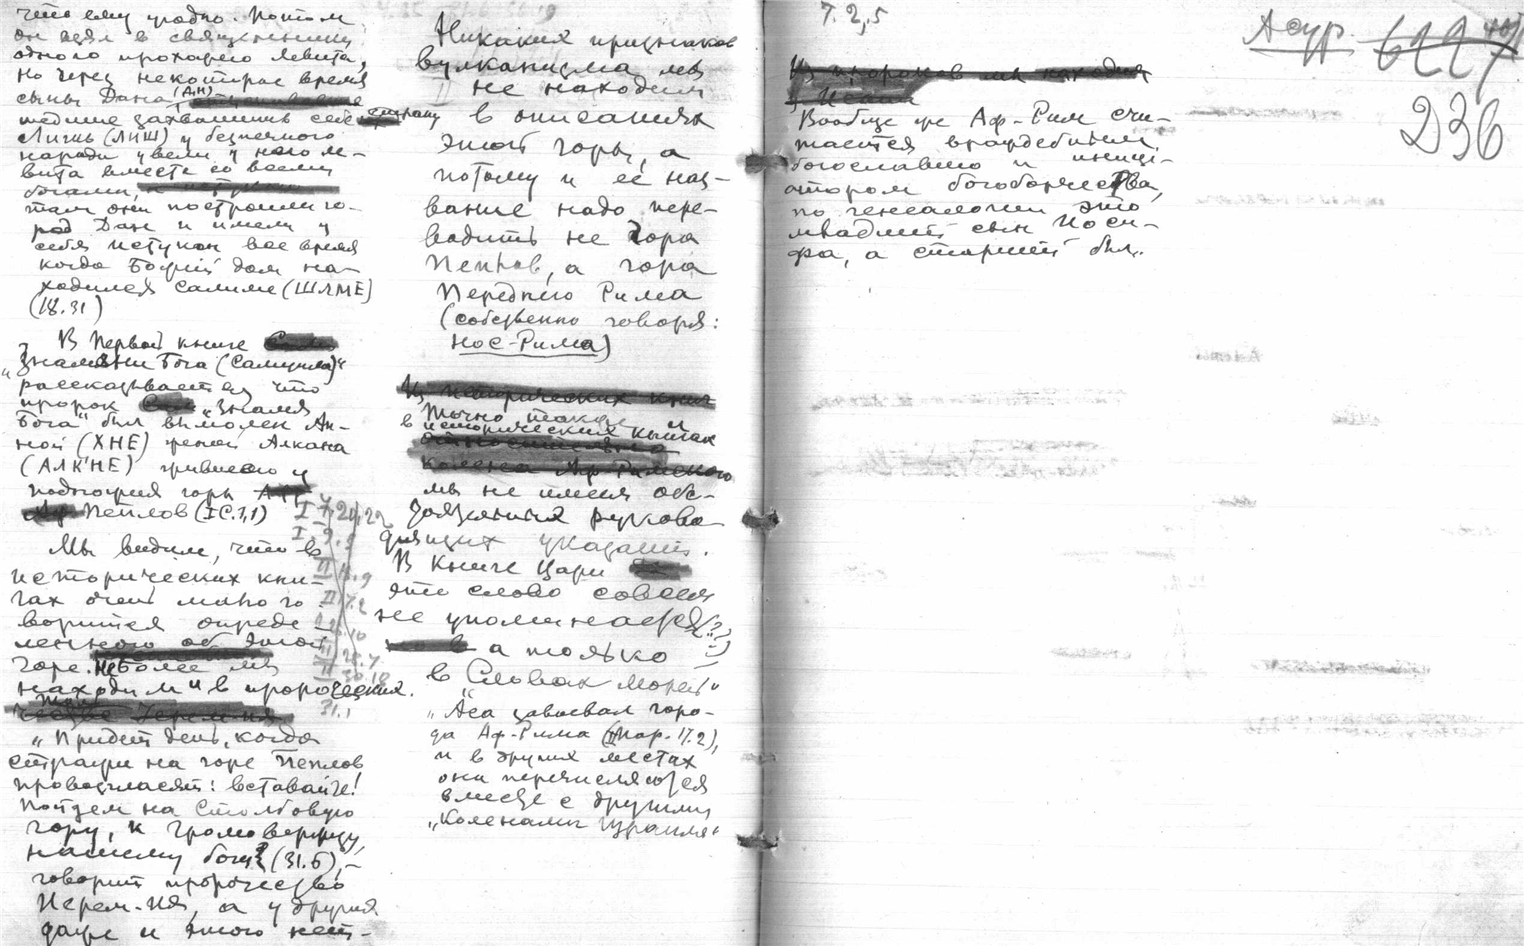 чем ему угодно. Потом
он взял в священники
одного прохожего левита,
но через некоторое время
сыны Дана (ДН)
шедшие захватить себе страну
Лигиш (ЛИШ) у безпечного
народа увели у него ле-
вита вместе со всеми
богами,
там они построили го-
род Дан и имели у
себя истукан все время
когда Божий дом на-
ходился Салиме (ШЛМЕ)
(18.31)
В Первой книге
„Знамени Бога (Самуила)"
рассказывается что
пророк „Знамя
Бога" был вымолен Ан-
ной (ХНЕ) женой Алкана
(АЛКНЕ) жившего у
подножия горы
Пеплов (IС.1,1)
Мы видим, что в
исторических кни-
гах очень мало го-
ворится опреде-
ленного об этой
горе. Не более мы
находим и в пророческих.
„Придет день, когда
стражи на горе Пеплов
провозгласят: вставайте!
пойдем на Столбовую
гору, к Громовержцу,
нашему богу" (31.6),—
говорит пророчество
Иерем-Ия, а у других
даже и этого нет.—
I 7, 24, 22
I 9.9
II 18.9
31.1
Никаких признаков
вулканизма мы
не находим
в описаниях
этой горы, а
потому и её наз-
вание надо пере-
водить не гора
Пеплов, а гора
Переднего Рима
(собственно говоря:
нос-Рима)
Точно также и
в исторических книгах
мы не имеем обс-
руково-
дящих указаний.
В Книге Цари
это слово совсем
не упоминается (??)
а только
в „Словах Морей"
„Аса завоевал горо-
да Аф-Рима (IПар. 17.2),
и в других местах
они перечисляются
вместе с другими
„коленами Израиля"
7. 2, 5
Асур. 6227
236
Вообще же Аф-Рим счи-
тается враждебным
богославию и иници-
атором богоборчества,
по генеалогии это
младший сын Иоси-
фа, а старший был.